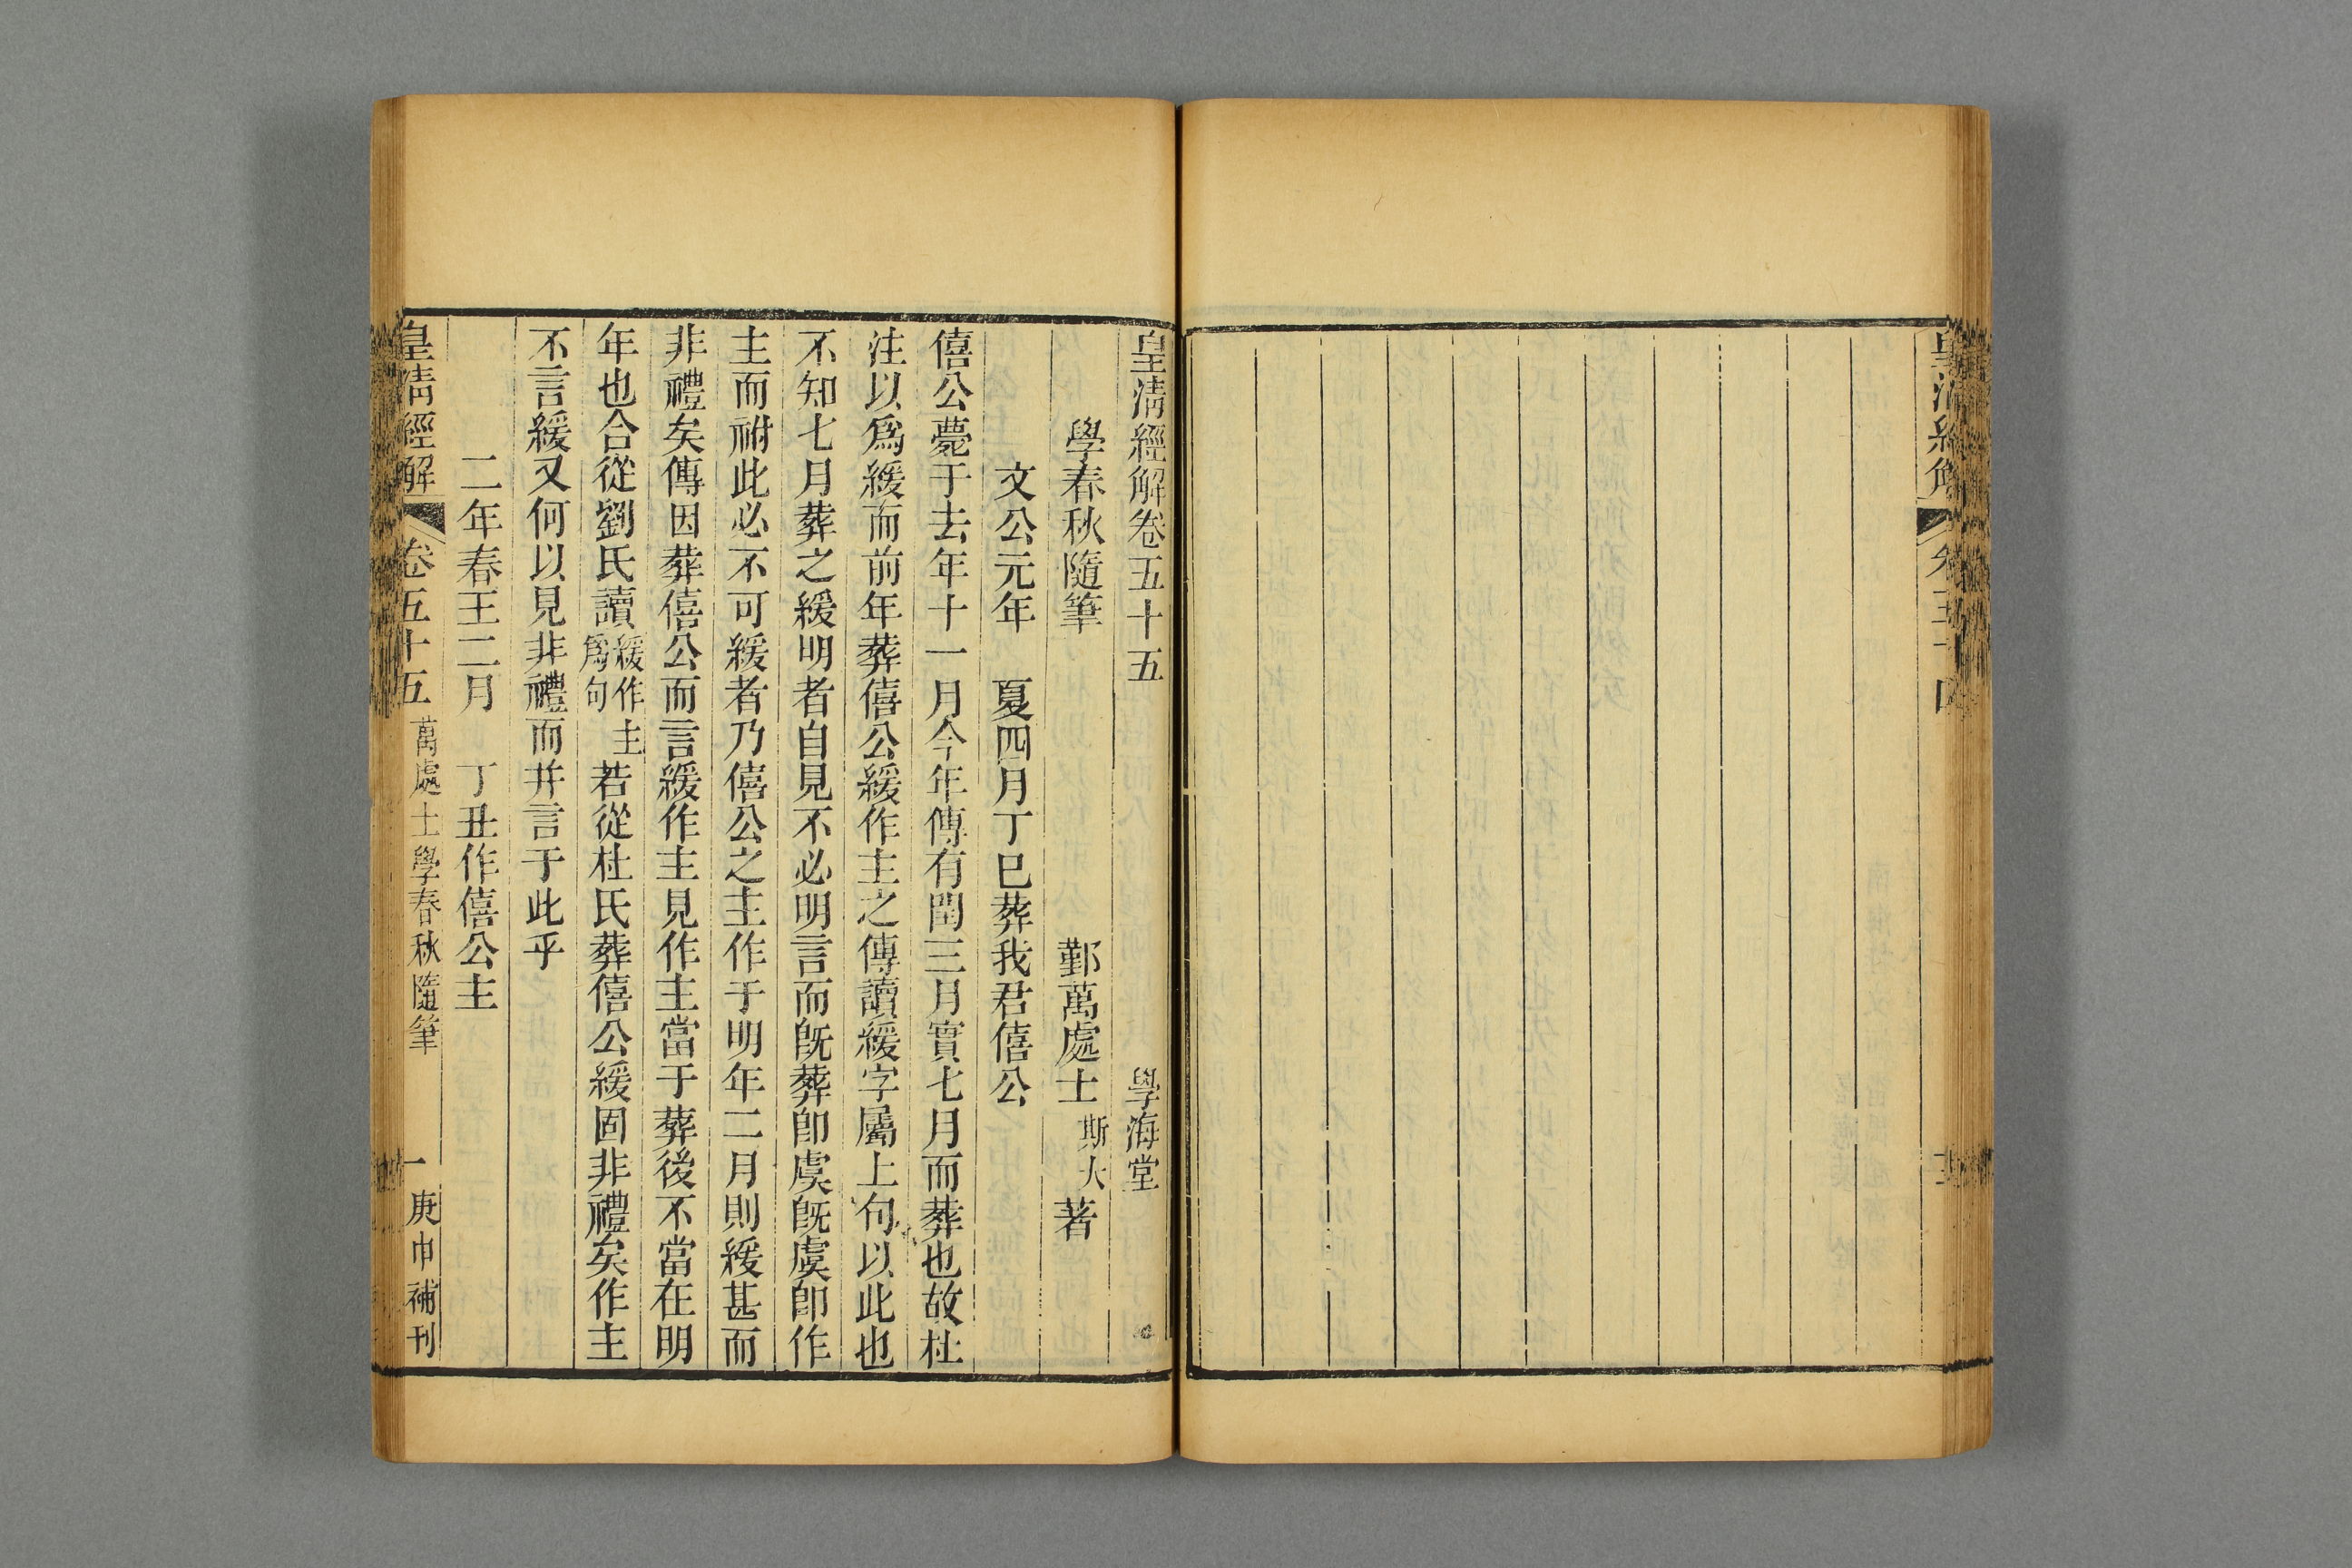 皇清經解 卷五十四
皇清經解卷五十五 學海堂
學春秋隨筆 鄞萬處士斯大著
文公元年 夏四月丁巳葬我君僖公
僖公薨于去年十一月今年傳有閏三月實七月而葬也故杜
注以爲緩而前年葬僖公緩作主之傳讀緩字屬上句以此也
不知七月葬之緩明者自見不必明言而旣葬卽虞旣虞卽作
主而祔此必不可緩者乃僖公之主作于明年二月則緩甚而
非禮矣傳因葬僖公而言緩作主見作主當于葬後不當在明
年也合從劉氏讀緩作主爲句若從杜氏葬僖公緩固非禮矣作主
不言緩又何以見非禮而幷言于此乎
二年春王二月 丁丑作僖公主
皇清經解 卷五十五 萬處士學春秋隨筆 一 庚申補刊